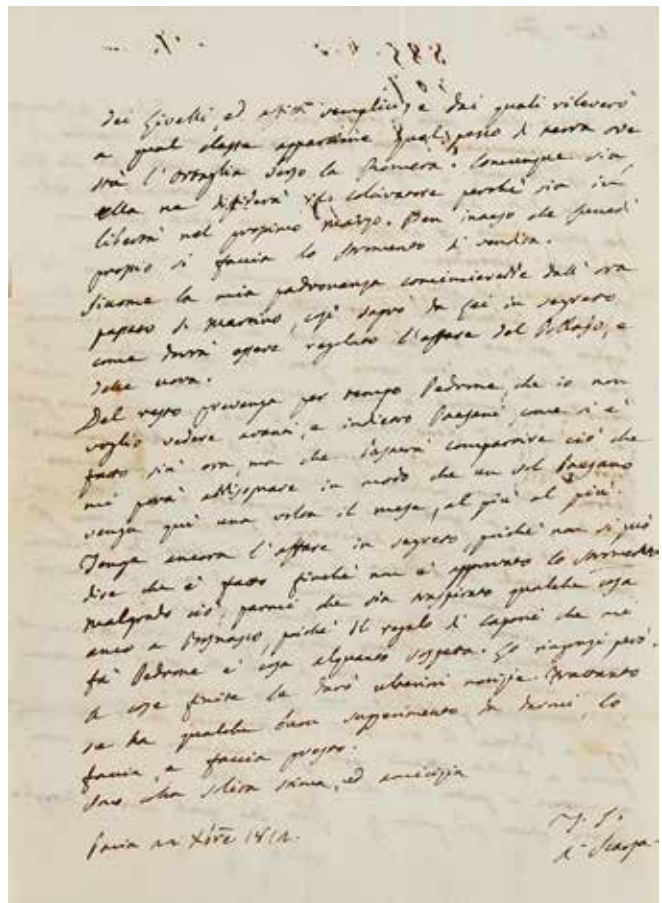 dei Gioelli, ed affitti semplici, e dai quali rileverò
a qual classe appartiene quel pezzo di terra ove
stà l'Ortaglia verso la
ella ne diffiderà il coltivatore perchè sia in
libertà nel prossimo Marzo. Ben inteso che
proprio si faccia lo stromento di vendita.
Siccome la mia padronanza comincierebbe dall' ora
passato S. Martino, così saprò da Lei in segreto
come dovrà essere regolato l'affare del Pollajo, e
delle uova.
Del resto prevenga per tempo Pedrone, che io non
voglio vedere avanti, e indietro Paesani, come si è
fatto sin' ora, ma che lascerà comparire ciò che
mi potrà abbisognare in modo che un sol Paesano
venga quì una volta il mese, al più al più.
Tenga ancora l'affare in segreto, poichè non si può
dire che è fatto finchè non è approvato lo stromento
Malgrado ciò, parmi che sia traspirato qualche cosa
anco a Bosnasco, poichè il regalo di caponi che mi
fà Pedrone è cosa alquanto sospetta. Lo ringrazi però.
A cose finite le darò ulteriori notizie. Frattanto
se ha qualche buon suggerimento da darmi, lo
faccia, e faccia presto.
Sono colla solita stima, ed amicizia
Pavia Xbre 1812.
A. Scarpa